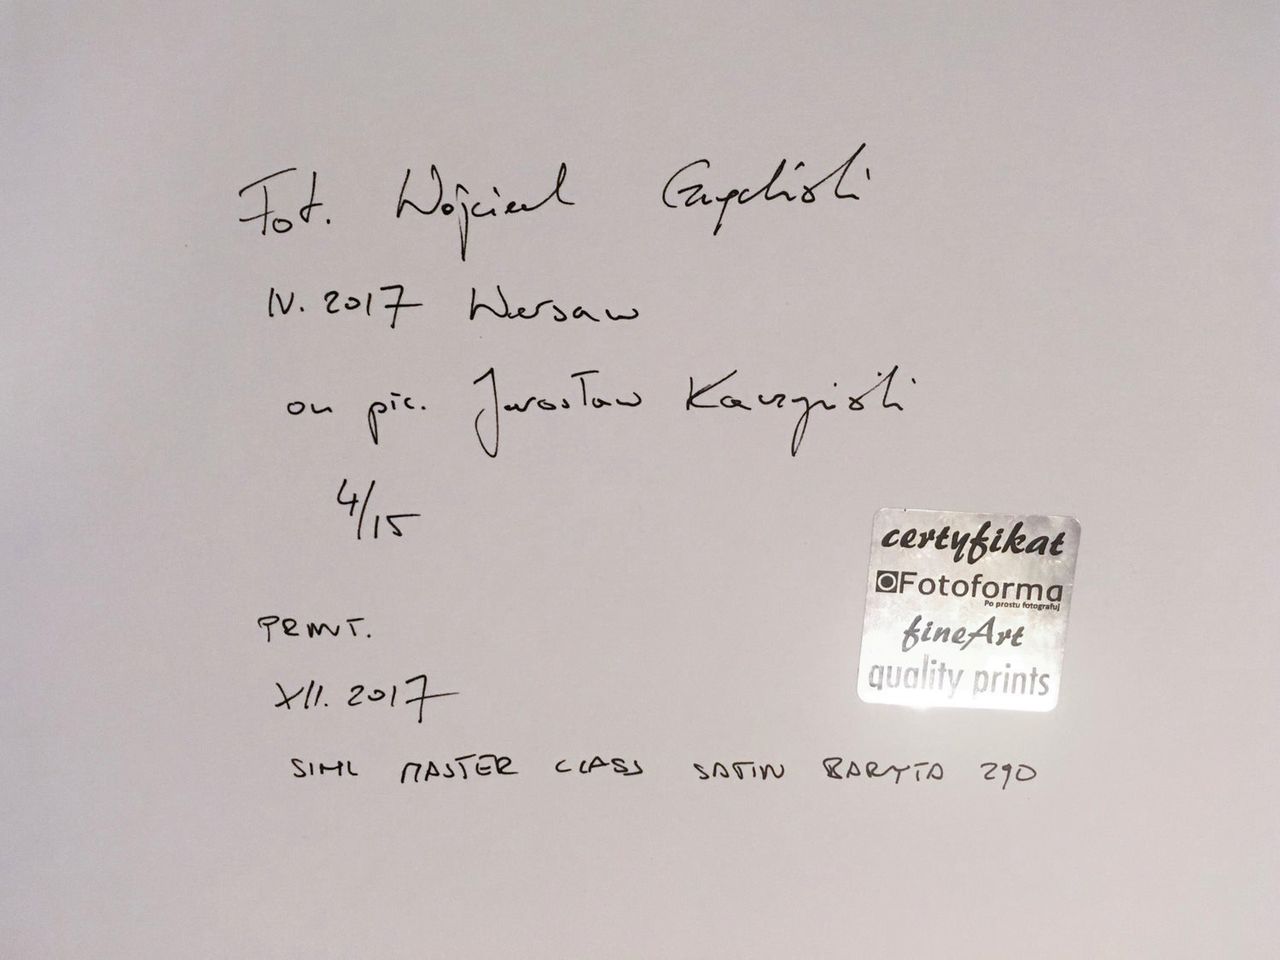 Fot. Wojciech Grzędziński
IV. 2017 Warsaw
on pic. Jarosław Kaczyński
4/15
PRINT.
XII. 2017
SIHL MASTER CLASS SATIN BARYTA 290
certyfikat
Fotoforma
Po prostu fotografuj
fineArt
quality prints